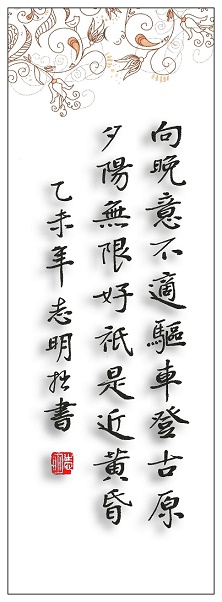 向晚意不適驅車登古原
夕陽無限好祇是近黃昏
乙未年志明拙書